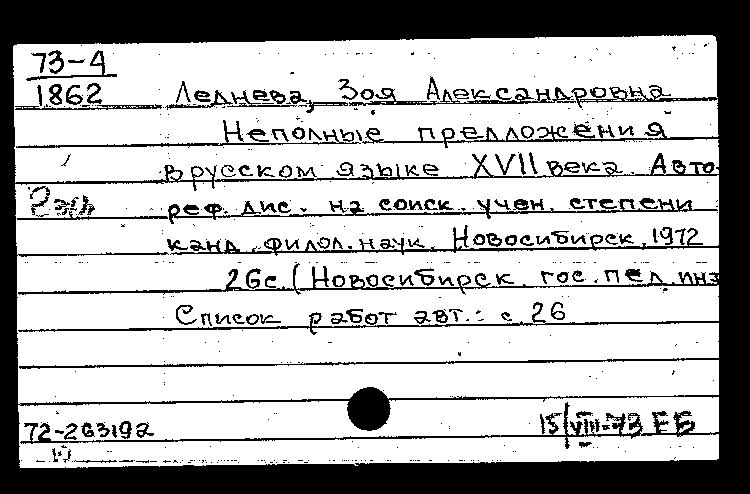 73-4
1862
Леднева, Зоя Александровна
Неполные предложения
в русском языке XVII века. Авто-
реф. дис. на соиск. учен. степени
канд. филол. наук. Новосибирск, 1972
26с. (Новосибирск. гос. пед. инт
Список работ авт.: с 26
72-263192
15/VIII-73 ЕБ